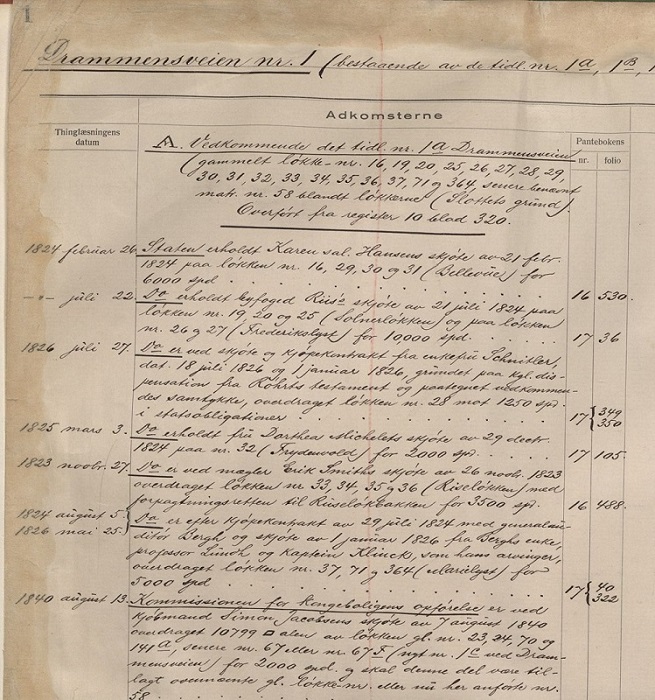 1
Drammensveien nr. 1 (bestaaende av de tidl. nr. 1a, 1B, 1
Adkomsterne
Thinglæsningens datum
Pantebokens
nr. folio
A. Vedkommende det tidl. nr. 1a Drammensveien
(gammelt løkke-nr. 16, 19, 20, 25, 26, 27, 28, 29,
30, 31, 32, 33, 34, 35, 36, 37, 71 og 364, senere benævnt
matr. nr. 58 blandt løkkerne (Slottets grund).
Overført fra register 10 blad 320.
1824 februar 26. Staten erholdt Karen sal. Hansens skjøte av 21 febr.
1824 paa løkken nr. 16, 29, 30 og 31 (Bellevüe) for
6000 spd 16 530.
-"- juli 22. Do erholdt byfoged Riis's skjøte av 21 juli 1824 paa
løkken nr. 19, 20 og 25 (Solnerløkken) og paa løkken
nr. 26 og 27 (Frederikslyst) for 10,000 spd. 17 36
1826 juli 27. Do er ved skjøte og kjøpekontrakt fra enkefrü Schnitler,
dat. 18 juli 1826 og 1 januar 1826, grundet paa kgl. dis-
pensation fra testament og paategnet vedkommen-
des samtykke, overdraget løkken nr. 28 mot 1250 spd.
i statsobligationer 17 { 349 350
1825 mars 3. Do erholdt frü Dorthea Michelets skjøte av 29 decbr.
1824 paa nr. 32 (Frydenvold) for 2000 spd. 17 105.
1823 novbr. 27. Do er ved magler Erik Smiths skjøte av 26 novb. 1823
overdraget løkken nr 33, 34, 35 og 36 (Rüseløkken) med
forpagtningsretten til Rüseløkbakken for 3500 spd. 16 488.
1824 august 5.
1826 mai 25. } Do er efter kjøpekontrakt av 29 juli 1824 med generalau-
ditør Bergh og skjøte av 1 januar 1826 fra Berghs enke,
professor Lündh og kaptein Klinck, som hans arvinger,
overdraget løkken nr. 37, 71 og 364 (Marilyst) for
5000 spd 17 { 40 322
1840 august 13. Kommissionen for kongeboligens opførelse er ved
kjøbmand Simon Jacobsens skjøte av 7 august 1840
overdraget 10799 □ alen av løkken gl. nr. 23, 24, 70 og
141a, senere nr. 67 eller nr. 67 F (nyt nr. 1c ved Dram-
mensveien) for 2000 spd. og skal denne del være til-
lagt gl. løkke-nr. eller nü her anførte nr.
58